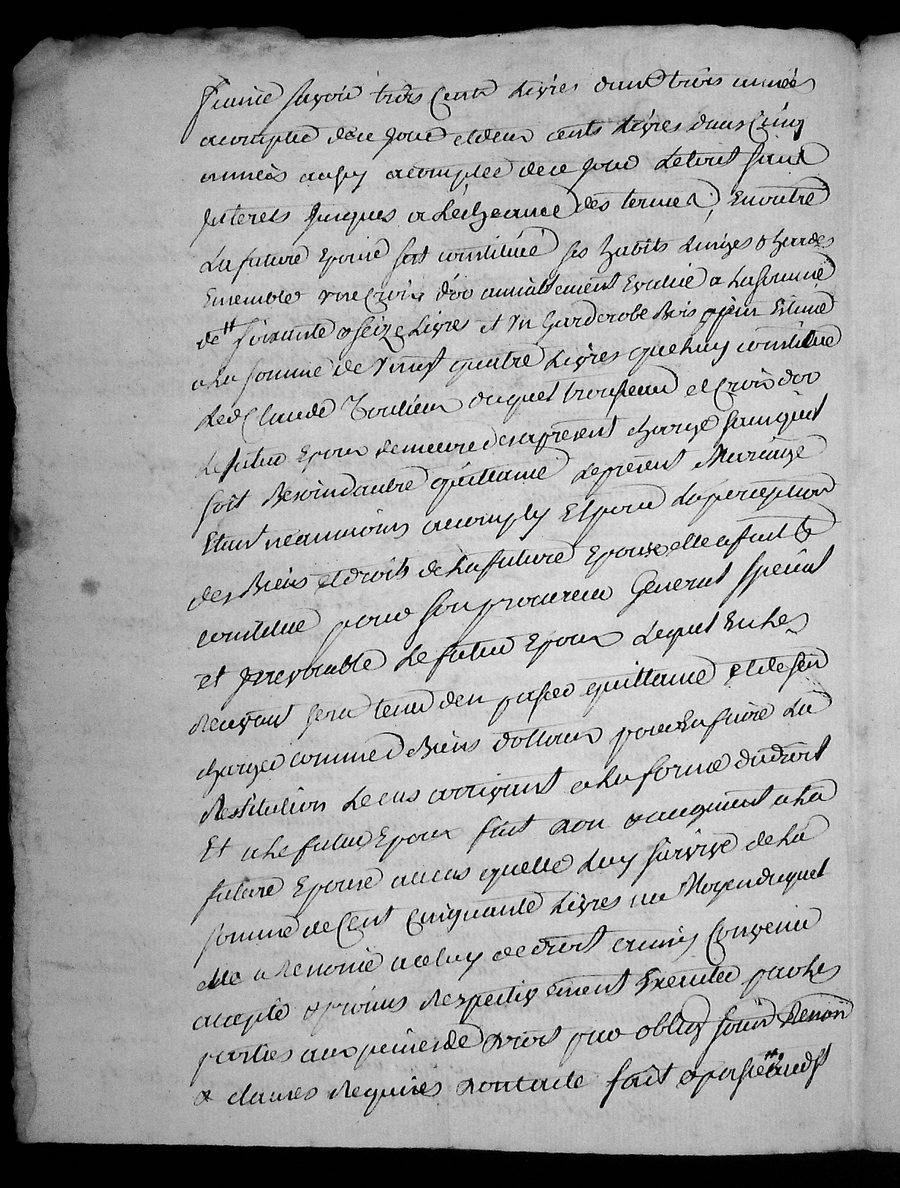 suivie savoir trois cents livres dans trois années
acompter de ce jour et deux cents livres dans cinq
années aussy acompter de ce jour le tout sans
interets jusques a lécheance des termes, En outre
La future Epouse sest constitué ses habits linges & hardes
Ensemble une croix d'or amiablement Evalué a la somme
de soixante & seize livres et un garderobe Bois sapin Estimé
a la somme de vingt quatre livres que luy constitue
led Claude duquel trousseau et croix dor
le futur Epoux demeure des apresent chargé sans quil
soit Besoin dautre quittance le present Mariage
Etant neammoins acomply Et pour la perception
des Biens et droits de la future Epouse elle a fait &
constitué pour son procureur General special
et Irrevocable le futur Epoux lequel En les
Recevant sera tenu den passer quittance et de sen
charger comme de Biens dottaux pour En faire la
Restitution le cas arrivant a la forme du droit
Et a le futur Epoux fait don & augment a la
future Epouse au cas quelle luy survive de la
somme de Cent cinquante livres au moyen duquel
elle a Renoncé a celuy de droit ainsy Convenu
accepté & promis Respectivement Executer par les
parties aux peines de droit par oblig soum Renon
& clauses Requises dont acte fait & passé aud